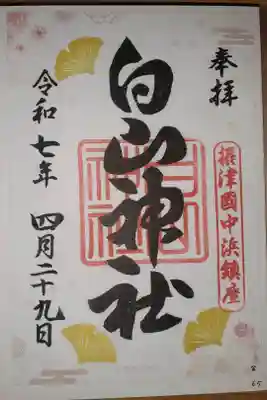 奉拝
摂津國中浜鎮座
白山神社
令和七年 四月二十九日